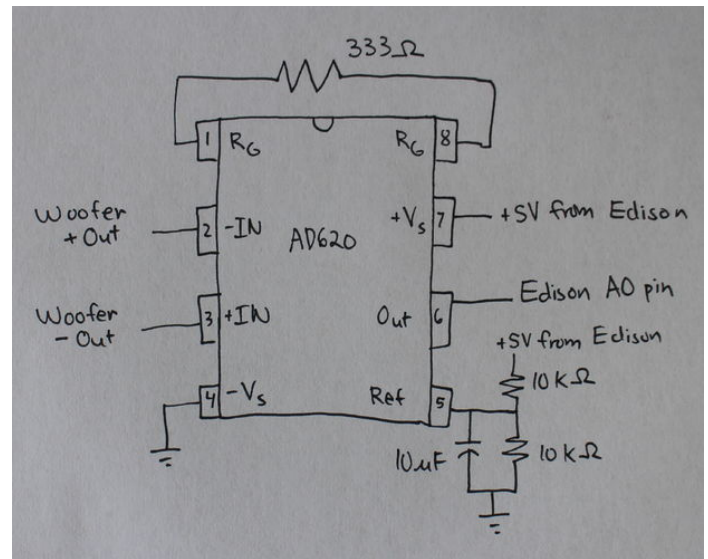 333Ω
1 RG
RG 8
Woofer
+ Out
2 -IN
AD620
+Vs 7
+5V from Edison
Woofer
- Out
3 +IN
Out 6
Edison A0 pin
+5V from Edison
10kΩ
4 -Vs
Ref 5
10uF
10kΩ